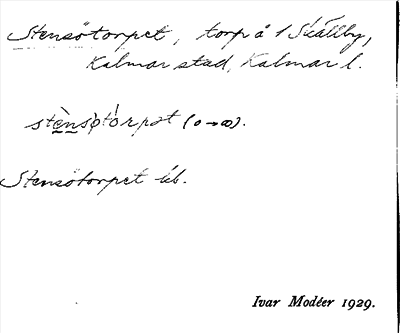 Stensötorpet, torp å 1 Skälby,
Kalmar stad, Kalmar l.
stènsøtórpət (o→ω).
Stensötorpet ib.
Ivar Modéer 1929.